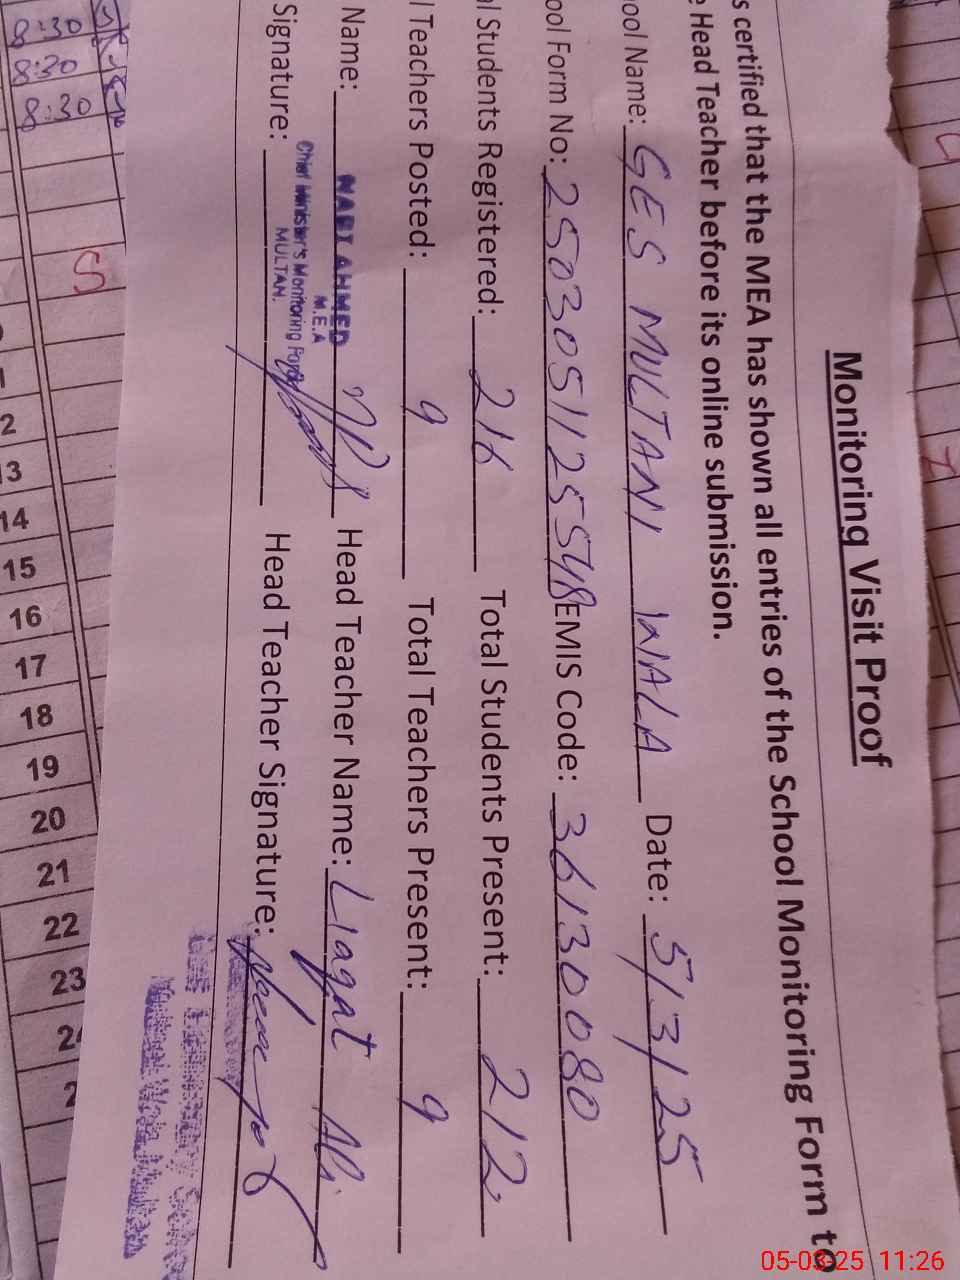 Monitoring Visit Proof
s certified that the MEA has shown all entries of the School Monitoring Form to
e Head Teacher before its online submission.
ool Name: GES MULTANI WALA Date: 5/3/25
ool Form No: 2503051125548 EMIS Code: 36130080
al Students Registered: 216 Total Students Present: 212
l Teachers Posted: 9 Total Teachers Present: 9
Name: Head Teacher Name: Liaqat Ali
AHMED
M.E.A
Chief Minister's Monitoring
MULTAN.
Signature: Head Teacher Signature:
8:30
8:30
8:30
2
3
14
15
16
17
18
19
20
21
22
23
2
2
05-03-25 11:26